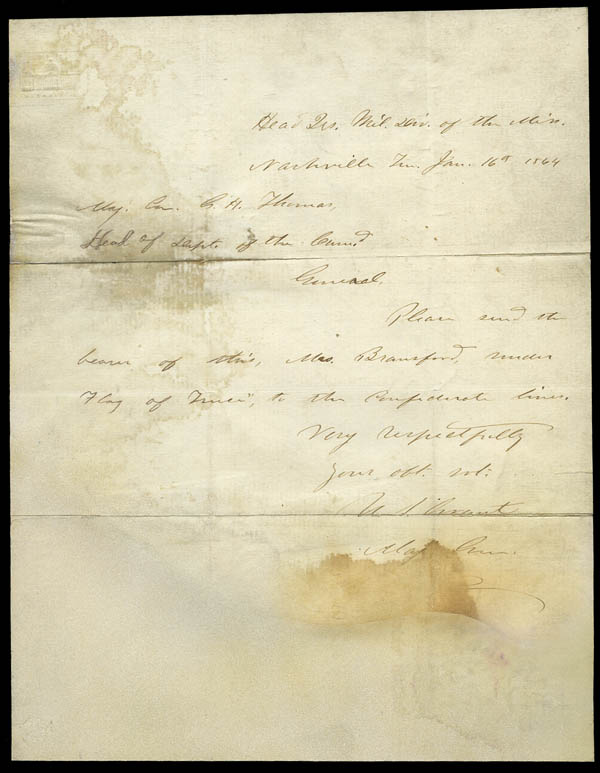 Head Qrs. Mil. Div. of the Miss.
Nashville Ten. Jan. 16th 1864
Maj. Gen. G. H. Thomas,
Head of Dept. of the Cumd
General,
Please send the
bearer of this, Mrs. Bransford, under
"Flag of Truce", to the Confederate lines.
Very respectfully
your obt. svt.
U. S. Grant
Maj. Gen.